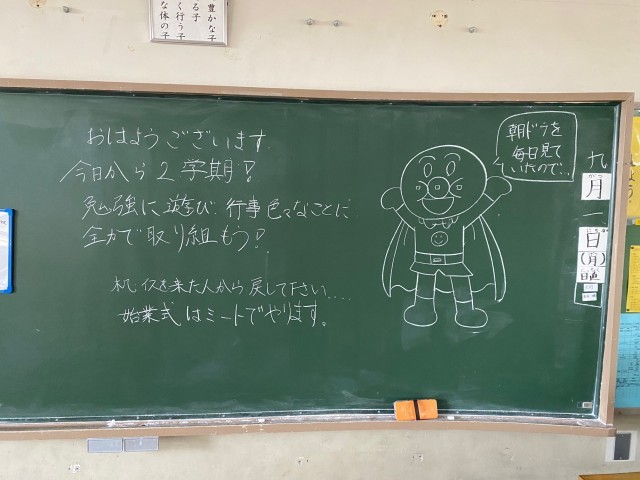 豊かな子
く行う子
る子
な体の子
おはようございます
今日から2学期!
勉強に遊び 行事色々なことに
全力で取り組もう!
机、イスを来た人から戻して下さい....
始業式はミートでやります。
朝ドラを
毎日見て
いたので...
九
月
一
日
(月)
日直